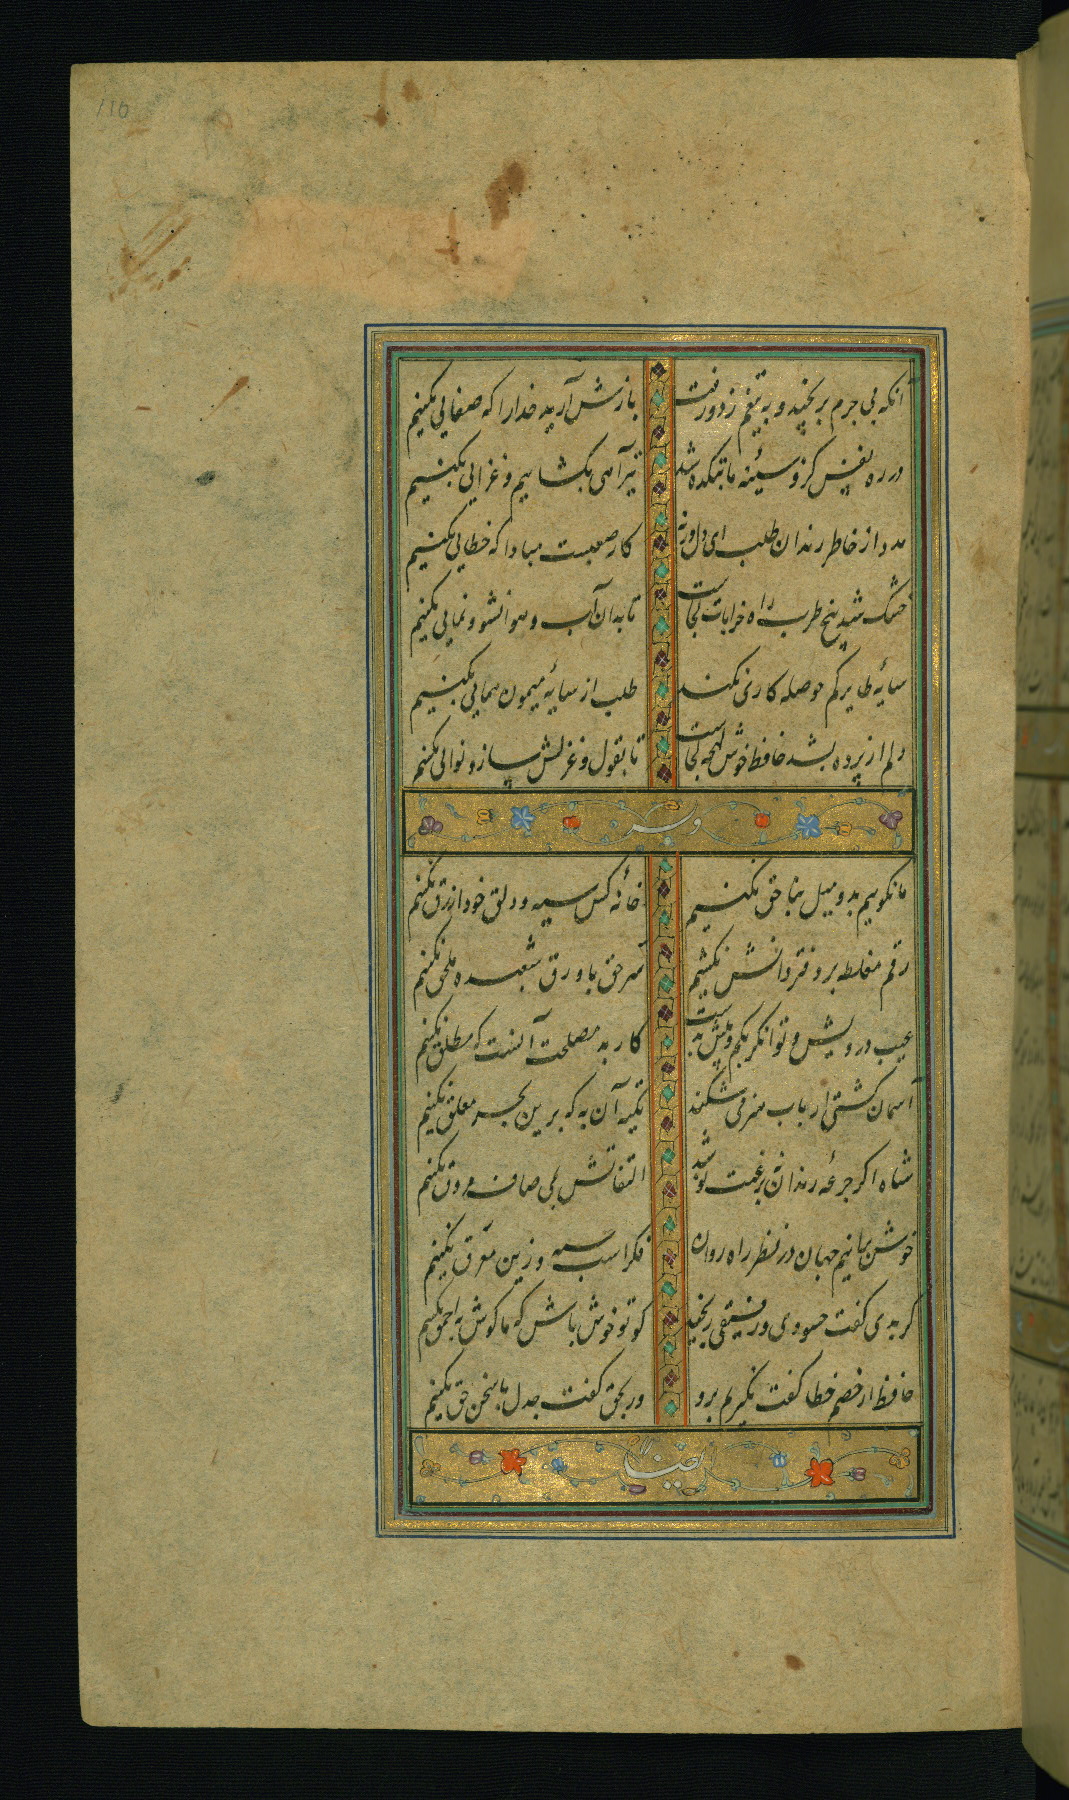 116
آنکه بی جرم برنجید و به تیغم زد و رفت بازش آرید خدا را که صفایی بکنیم
در ره نفس کزو سینه ما بتکده شد تیر آهی بکشاییم و غزایی بکنیم
مدد از خاطر رندان طلب ای دل ورنه کار صعبست مبادا که خطایی بکنیم
خشک شد بیخ طرب راه خرابات کجاست تا بدان آب و هوا نشو و نمایی بکنیم
سایه طایر کم حوصله کاری نکند طلب از سایه میمون همایی بکنیم
دلم از پرده بشد حافظ خوش لهجه کجاست تا بقول و غزلش ساز و نوایی بکنیم
وله
ما نکوییم بد و میل بنا حق نکنیم خانه کس سیه و دلق خود ازرق نکنیم
رقم مغلطه بر دفتر دانش نکشیم سر حق با ورق شعبده ملحق نکنیم
عیب درویش و توانگر بکم و بیش بدست کار بد مصلحت آنست که مطلق نکنیم
آسمان کشتی ارباب هنر می شکند تکیه آن به که برین بحر معلق نکنیم
شاه اگر جرعه رندان نه بحرمت نوشد التفاتش بمی صاف مروق نکنیم
خوش برانیم جهان در نظر راه روان فکر اسب سیه و زین مغرق نکنیم
گر بدی گفت حسودی و رفیقی رنجید گو تو خوش باش که ما گوش باحمق نکنیم
حافظ ار خصم خطا گفت نگیریم برو ور بحق گفت جدل با سخن حق نکنیم
ایضا